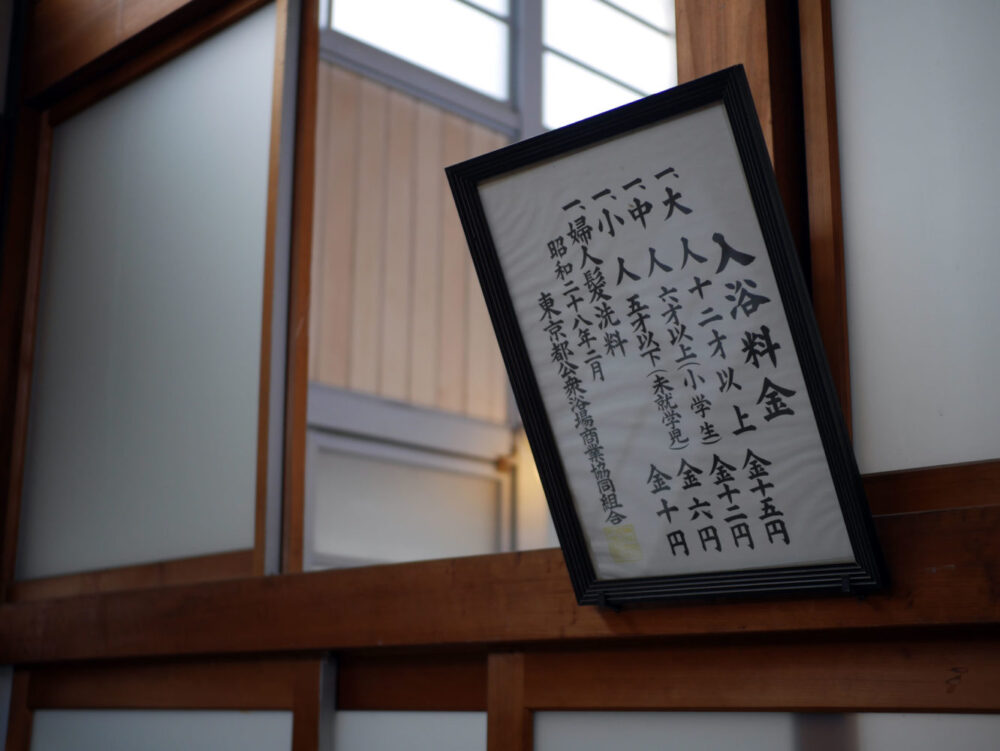 入浴料金
一、大人十二才以上 金十五円
一、中人六才以上(小学生) 金十二円
一、小人五才以下(未就学児) 金六円
一、婦人髪洗料 金十円
昭和二十八年二月
東京都公衆浴場商業協同組合